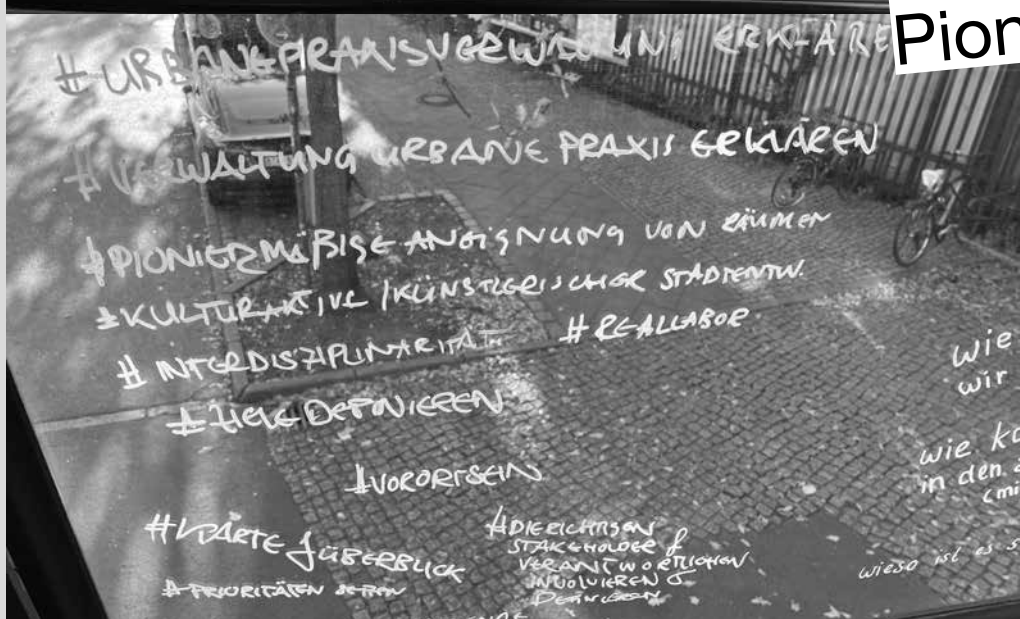 Pion
#URBANEPRAXISVERWALTUNG ERKLÄRE
#VERWALTUNG URBANE PRAXIS ERKLÄREN
#PIONIERMÄßIGE ANEIGNUNG VON RÄUMEN
#KULTURAKTIVE/KÜNSTLERISCHER STADTENTW.
#INTERDISZIPLINARITÄT #REALLABOR
#ZIELE DEFINIEREN
#VORORTSEIN
wie
wir
wie ko
in den
(mi
#KARTE & ÜBERBLICK
#PRIORITÄTEN SETZEN
#DIE RICHTIGEN
STAKEHOLDER &
VERANTWORTLICHEN
INVOLVIEREN &
DEFINIEREN
wieso ist es s